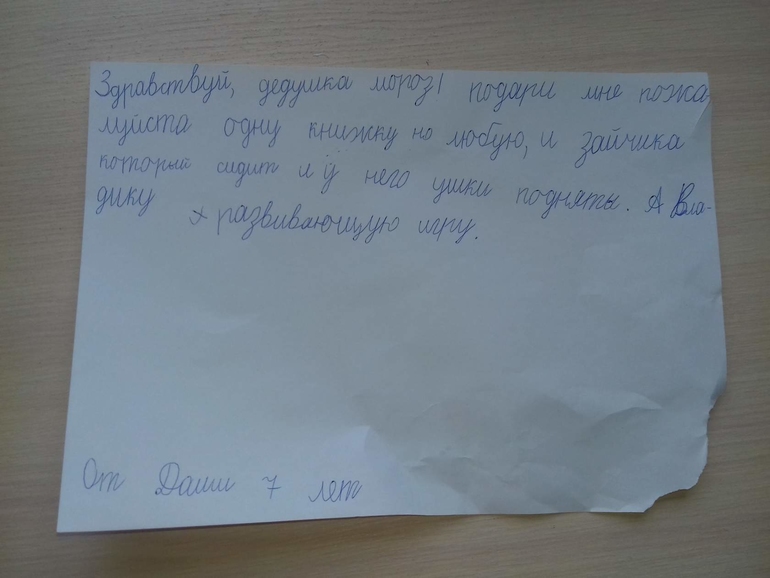 Здравствуй, дедушка мороз! подари мне пожа
луйста одну книжку но любую, и зайчика
который сидит и у него ушки подняты. А Вла-
дику развивающую игру.
От Даши 7 лет